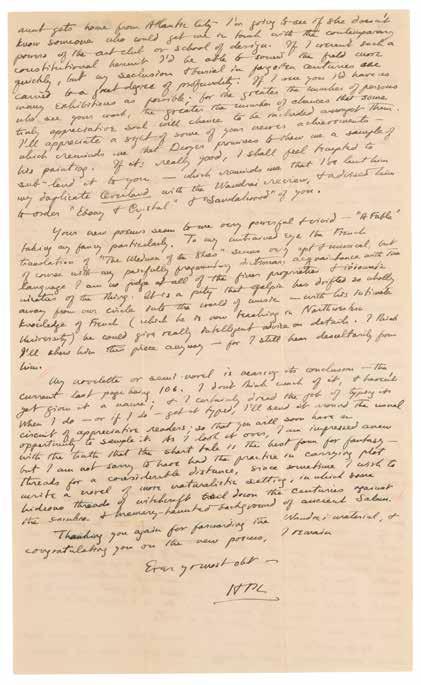 aunt gets home from Atlantic City I'm going to see if she doesn't
know someone who could get me in touch with the contemporary
powers of the art club or school of design. If I weren't such a
constitutional hermit I'd be able to sound the field more
quickly, but my seclusion & burial in forgotten centuries are
carried to a great degree of profundity. If I were you I'd have as
many exhibitions as possible; for the greater the number of persons
who see your work, the greater the number of chances that some
truly appreciative soul will chance to be included amongst them.
I'll appreciate a sight of some of your newer achievements —
which reminds me that Dwyer promises to shew me a sample of
his painting. If it's really good, I shall feel tempted to
sub-lend it to you — which reminds me that I've lent him
my duplicate Overland with the Wandrei review, & advised him
to order "Ebony & Crystal" & "Sandalwood" of you.
Your new poems seem to me very powerful & vivid — "A Fable"
taking my fancy particularly. To my untrained eye the French
translation of "The Medusa of the Skies" seems very apt & musical, but
of course with my painfully fragmentary dictionary acquaintance with the
language I am no judge at all of the finer proprieties & idiomatic
niceties of the thing. It is a pity that Galpin has drifted so wholly
away from our circle into the world of music — with his intimate
knowledge of French (which he is now teaching in Northwestern
University) he could give really intelligent advice on details. I think
I'll shew him this piece anyway — for I still hear desultorily from
him.
My novelette or semi-novel is nearing its conclusion — the
current last page being 106. I don't think much of it, & haven't
yet given it a name; & I certainly dread the job of typing it.
When I do — or if I do — get it typed, I'll send it around the usual
circuit of appreciative readers; so that you will soon have an
opportunity to sample it. As I look it over, I am impressed anew
with the truth that the short tale is the best form for fantasy —
but I am not sorry to have had the practice in carrying plot
threads for a considerable distance, since sometime I wish to
write a novel of more naturalistic setting, in which some
hideous threads of witchcraft trail down the centuries against
the sombre & memory-haunted background of ancient Salem.
Thanking you again for forwarding the Wandrei material, &
congratulating you on the new poems, I remain
Ever yr most obt —
HPL